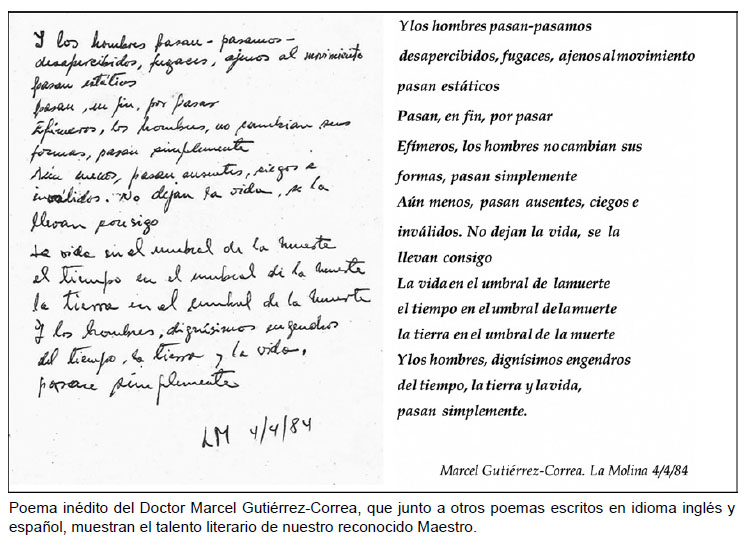 Y los hombres pasan - pasamos -
desapercibidos, fugaces, ajenos al movimiento
pasan estáticos
pasan, en fin, por pasar
Efímeros, los hombres, no cambian sus
formas, pasan simplemente
Aún menos, pasan ausentes, ciegos e
inválidos. No dejan la vida, se la
llevan consigo
La vida en el umbral de la muerte
el tiempo en el umbral de la muerte
la tierra en el umbral de la muerte
Y los hombres, dignísimos engendros
del tiempo, la tierra y la vida,
pasan simplemente
LM 4/4/84
Y los hombres pasan-pasamos
desapercibidos, fugaces, ajenos al movimiento
pasan estáticos
Pasan, en fin, por pasar
Efímeros, los hombres no cambian sus
formas, pasan simplemente
Aún menos, pasan ausentes, ciegos e
inválidos. No dejan la vida, se la
llevan consigo
La vida en el umbral de la muerte
el tiempo en el umbral de la muerte
la tierra en el umbral de la muerte
Y los hombres, dignísimos engendros
del tiempo, la tierra y la vida,
pasan simplemente.
Marcel Gutiérrez-Correa. La Molina 4/4/84
Poema inédito del Doctor Marcel Gutiérrez-Correa, que junto a otros poemas escritos en idioma inglés y
español, muestran el talento literario de nuestro reconocido Maestro.